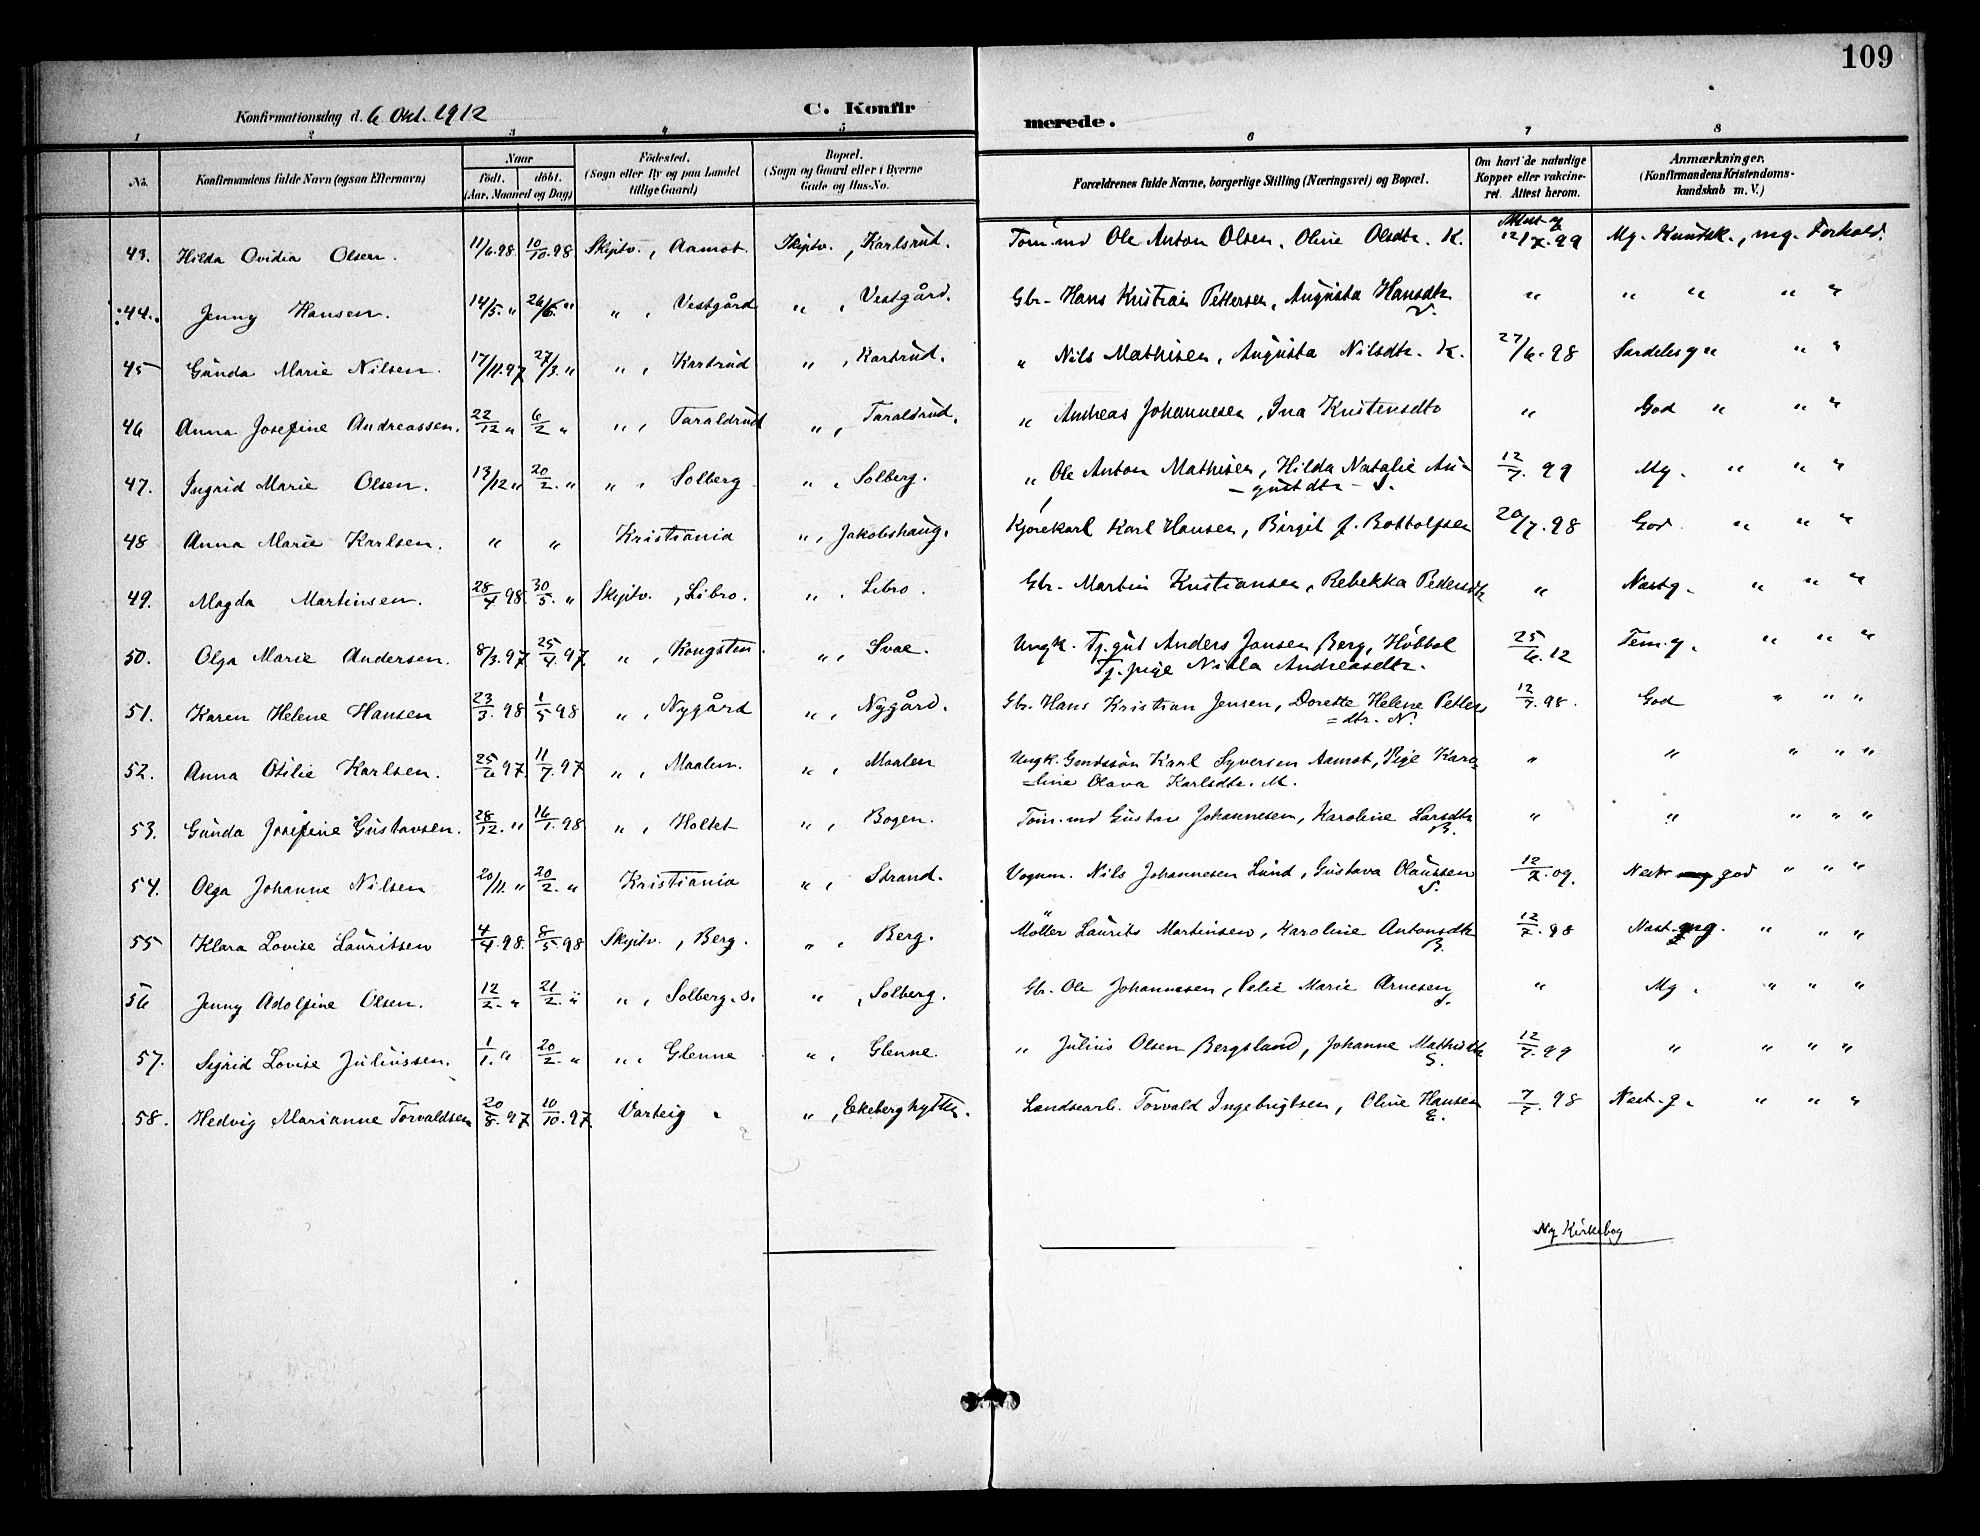 109
Konfirmationsdag d. 6 Okt. 1912 C. Konfirmerede.
1 2 3 4 5 6 7 8
No. Konfirmandens fulde Navn (ogsaa Efternavn) Naar födt. döbt. (Aar, Maaned og Dag) Födested. (Sogn eller By og paa Landet tillige Gaard) Bopæl. (Sogn og Gaard eller i Byerne Gade og Hus-No. Forældrenes fulde Navne, borgerlige Stilling (Næringsvei) og Bopæl. Om havt de naturlige Kopper eller vakcineret. Attest herom. Anmærkninger. (Konfirmandens Kristendomskundskab m. V.)
43. Hilda Ovidia Olsen. 11/6.98 10/10.98 Skiptv., Aamot. Skiptv., Karlsrud. Töm.md Ole Anton Olsen, Oline Olsdtr. K. Attest af 12/7.99 Mg. Kundsk., mg. Forhold.
44. Jenny Hansen. 14/5. " 26/6. " " , Vestgård " , Vestgård. Gbr. Hans Kristian Pettersen, Augusta Hansdtr V. " " " " "
45 Gunda Marie Nilsen. 17/11.97 27/3. " " , Kartrud " , Kartrud. " Nils Mathisen, Augusta Nilsdtr. K. 27/6.98 Særdeles g " " "
46 Anna Josefine Andreassen. 22/12 " 6/2 " " , Taraldrud " , Taraldrud. " Andreas Johannesen, Ina Kristensdtr " God " " "
47. Ingrid Marie Olsen. 13/12 " 20/2. " " , Solberg " , Solberg. " Ole Anton Mathisen, Hilda Natalie Au-
gustdtr - S. 12/7. 99 Mg. " " "
48 Anna Marie Karlsen. " " Kristiania " , Jakobshaug. Kjörekarl Karl Hansen, Birgit f. Bottolfsen 20/7.98 God. " " "
49. Magda Martinsen. 28/4 98. 30/5. " Skiptv. , Libro. " , Libro. Gbr. Martin Kristiansen, Rebekka Pedersdtr " Næst g. " " "
50. Olga Marie Andersen. 8/3.97 25/4.97. " , Kongsten. " , Svae. Ungk. Tj.gut Anders Jansen Berg, Höbböl
Tj. pige Andreasdtr. 25/6.12 Tem. g. " " "
51. Karen Helene Hansen 23/3.98 1/5 98 " , Nygård " , Nygård. Gbr. Hans Kristian Jensen, Dorette Helene Petters
=dtr. N. 12/7.98. God " " "
52. Anna Otilie Karlsen. 25/6 97 11/7.97 " , Maalen. " , Maalen Ungk. Gmdssön Karl Syversen Aamot, Pige Karo=
=line Olava Karlsdtr. M. " " " " "
53. Gunda Josefine Gustavsen. 28/12. " 16/1.98 " , Holtet " , Bogen. Töm.md Gustav Johannesen, Karoline Larsdtr B. " " " " "
54. Olga Johanne Nilsen 20/11 " 20/2. " Kristiania " , Strand. Vognm. Nils Johannesen Lund, Gustava Olaussen S. 12/7.09. Næst god " " "
55 Klara Lovise Lauritsen 4/4.98. 8/5 98 Skiptv. , Berg. " , Berg. Möller Laurits Martinsen, Karoline Antonsdtr B. 12/7.98 Næst. mg. " " "
56 Jenny Adolfine Olsen. 12/2. " 21/2. " " , Solberg. s. " , Solberg. Gbr. Ole Johannesen, Marie Arnesen S. " Mg. " " "
57. Sigrid Lovise Juliussen. 1/1. " 20/2. " " , Glenne " , Glenne. " Julius Olsen Bergsland, Johanne Mathisdtr G. 12/7.99 " " " "
58. Hedvig Marianne Torvaldsen 20/8.97 10/10.97. Varteig " , Ekeberghytten. Landsearb. Torvald Ingebrigtsen, Oline Hansen E. 7/7.98 Næst. g. " " "
Ny Kirkebog